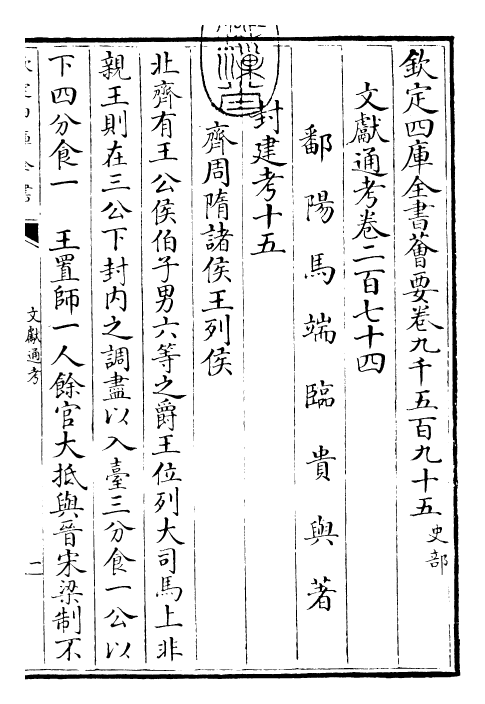 欽定四庫全書薈要卷九千五百九十五 史部
文獻通考卷二百七十四
鄱陽馬端臨貴與著
封建考十五
齊周隋諸侯王列侯
北齊有王公侯伯子男六等之爵王位列大司馬上非
親王則在三公下封内之調盡以入臺三分食一公以
下四分食一 王置師一人餘官大抵與晉宋梁制不
文獻通考